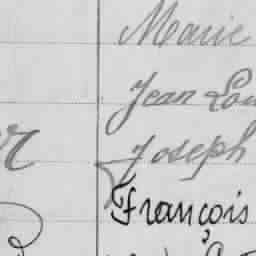 Marie
Jean Lou
Joseph
François